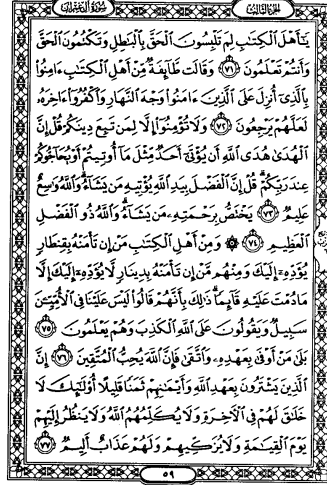 الجزء الثالث
سورة آل عمران
يَٰٓأَهْلَ ٱلْكِتَٰبِ لِمَ تَلْبِسُونَ ٱلْحَقَّ بِٱلْبَٰطِلِ وَتَكْتُمُونَ ٱلْحَقَّ
وَأَنتُمْ تَعْلَمُونَ ٧١ وَقَالَت طَّآئِفَةٌ مِّنْ أَهْلِ ٱلْكِتَٰبِ ءَامِنُوا۟
بِٱلَّذِىٓ أُنزِلَ عَلَى ٱلَّذِينَ ءَامَنُوا۟ وَجْهَ ٱلنَّهَارِ وَٱكْفُرُوٓا۟ ءَاخِرَهُۥ
لَعَلَّهُمْ يَرْجِعُونَ ٧٢ وَلَا تُؤْمِنُوٓا۟ إِلَّا لِمَن تَبِعَ دِينَكُمْ قُلْ إِنَّ
ٱلْهُدَىٰ هُدَى ٱللَّهِ أَن يُؤْتَىٰٓ أَحَدٌ مِّثْلَ مَآ أُوتِيتُمْ أَوْ يُحَآجُّوكُمْ
عِندَ رَبِّكُمْ قُلْ إِنَّ ٱلْفَضْلَ بِيَدِ ٱللَّهِ يُؤْتِيهِ مَن يَشَآءُ وَٱللَّهُ وَٰسِعٌ
عَلِيمٌ ٧٣ يَخْتَصُّ بِرَحْمَتِهِۦ مَن يَشَآءُ وَٱللَّهُ ذُو ٱلْفَضْلِ
ٱلْعَظِيمِ ٧٤ ۞ وَمِنْ أَهْلِ ٱلْكِتَٰبِ مَنْ إِن تَأْمَنْهُ بِقِنطَارٍ
يُؤَدِّهِۦٓ إِلَيْكَ وَمِنْهُم مَّنْ إِن تَأْمَنْهُ بِدِينَارٍ لَّا يُؤَدِّهِۦٓ إِلَيْكَ إِلَّا
مَا دُمْتَ عَلَيْهِ قَآئِمًا ذَٰلِكَ بِأَنَّهُمْ قَالُوا۟ لَيْسَ عَلَيْنَا فِى ٱلْأُمِّيِّۦنَ
سَبِيلٌ وَيَقُولُونَ عَلَى ٱللَّهِ ٱلْكَذِبَ وَهُمْ يَعْلَمُونَ ٧٥
بَلَىٰ مَنْ أَوْفَىٰ بِعَهْدِهِۦ وَٱتَّقَىٰ فَإِنَّ ٱللَّهَ يُحِبُّ ٱلْمُتَّقِينَ ٧٦ إِنَّ
ٱلَّذِينَ يَشْتَرُونَ بِعَهْدِ ٱللَّهِ وَأَيْمَٰنِهِمْ ثَمَنًا قَلِيلًا أُو۟لَٰٓئِكَ لَا
خَلَٰقَ لَهُمْ فِى ٱلْءَاخِرَةِ وَلَا يُكَلِّمُهُمُ ٱللَّهُ وَلَا يَنظُرُ إِلَيْهِمْ
يَوْمَ ٱلْقِيَٰمَةِ وَلَا يُزَكِّيهِمْ وَلَهُمْ عَذَابٌ أَلِيمٌ ٧٧
٥٩